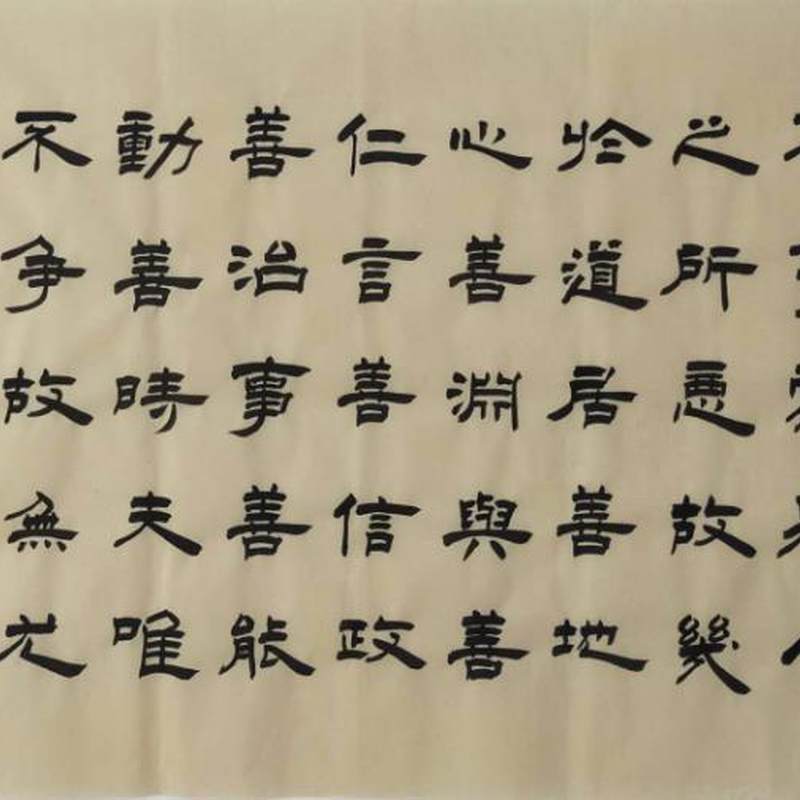 之所惡故幾
於道居善地
心善淵與善
仁言善信政
善治事善能
動善時夫唯
不争故無尤